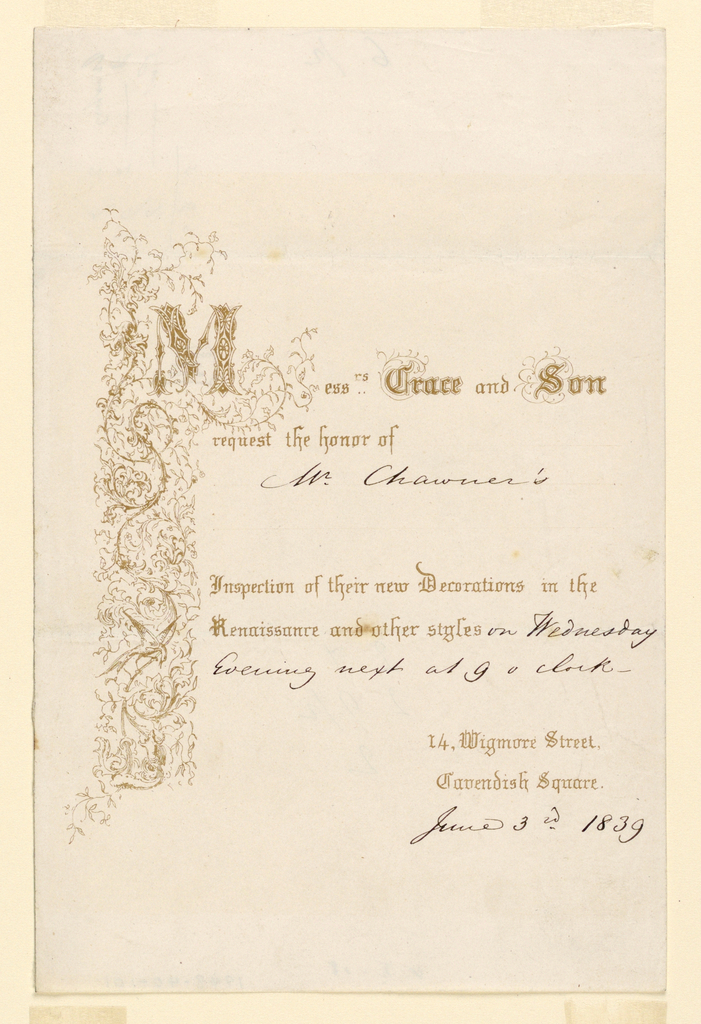 Messrs. Crace and Son
request the honor of
Mr. Chawner's
Inspection of their new Decorations in the
Renaissance and other styles on Wednesday
Evening next at 9 o clock -
14, Wigmore Street,
Cavendish Square.
June 3rd 1839